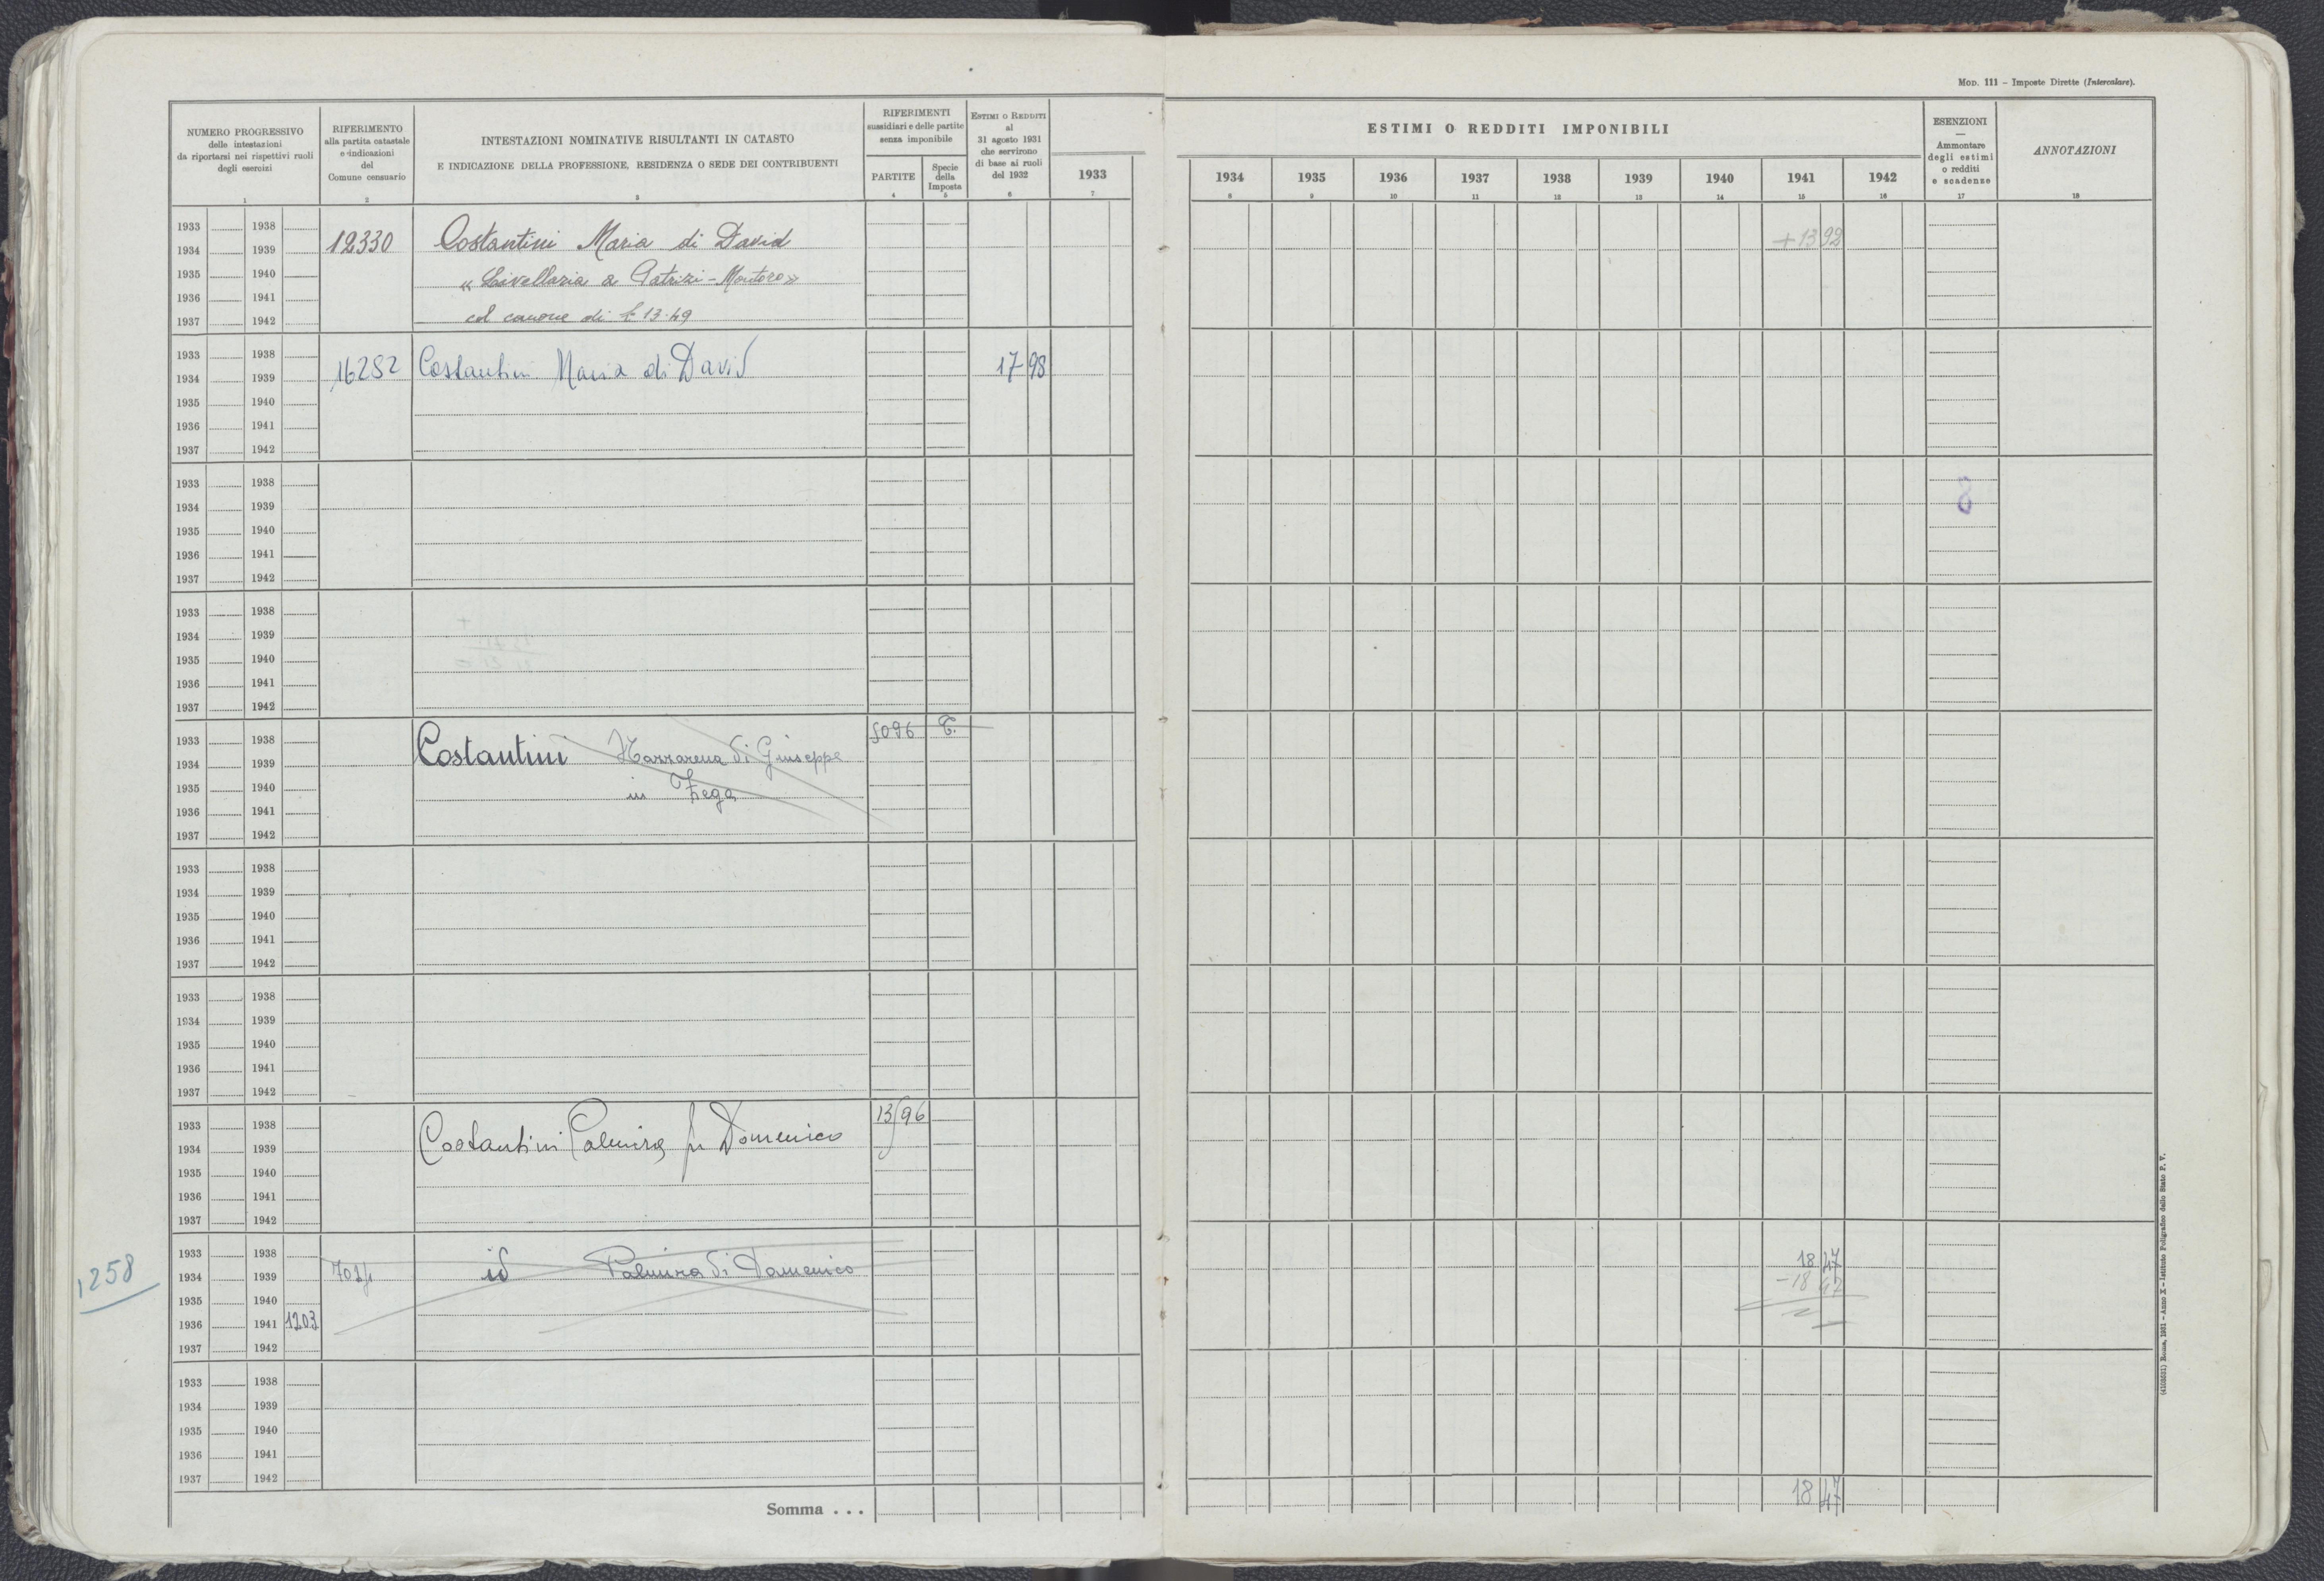 Mod. 111 – Imposte Dirette (Intercalare).
NUMERO PROGRESSIVO
delle intestazioni
da riportarsi nei rispettivi ruoli
degli esercizi
1
RIFERIMENTO
alla partita catastale
e indicazioni
del
Comune censuario
2
INTESTAZIONI NOMINATIVE RISULTANTI IN CATASTO
E INDICAZIONE DELLA PROFESSIONE, RESIDENZA O SEDE DEI CONTRIBUENTI
3
RIFERIMENTI
sussidiari e delle partite
senza imponibile
PARTITE
4
Specie
della
Imposta
5
ESTIMI O REDDITI
al
31 agosto 1931
che servirono
di base ai ruoli
del 1932
6
1933
7
ESTIMI O REDDITI IMPONIBILI
1934 1935 1936 1937 1938 1939 1940 1941 1942
8 9 10 11 12 13 14 15 16
ESENZIONI
—
Ammontare
degli estimi
o redditi
e scadenze
17
ANNOTAZIONI
18
1933 1938
1934 1939 12330 Costantini Maria di David +13 92
1935 1940 « Livellaria a Patrizi - Montoro »
1936 1941
1937 1942 col canone di £ 13.49
1933 1938
1934 1939 16282 Costantini Maria di David 17 98
1935 1940
1936 1941
1937 1942
1933 1938
1934 1939 8
1935 1940
1936 1941
1937 1942
1933 1938
1934 1939
1935 1940
1936 1941
1937 1942
1933 1938 5096 T.
1934 1939 Costantini Nazzarena di Giuseppe
1935 1940 in Zega
1936 1941
1937 1942
1933 1938
1934 1939
1935 1940
1936 1941
1937 1942
1933 1938
1934 1939
1935 1940
1936 1941
1937 1942
1933 1938 13596
1934 1939 Costantini Palmira fu Domenico
1935 1940
1936 1941
1937 1942
1933 1938 18 47
1258 1934 1939 id Palmira di Domenico -18 47
1935 1940
1936 1941 1203
1937 1942
1933 1938
1934 1939
1935 1940
1936 1941
1937 1942
Somma . . . 18 47
(4103031) Roma, 1931 – Anno X – Istituto Poligrafico dello Stato P. V.